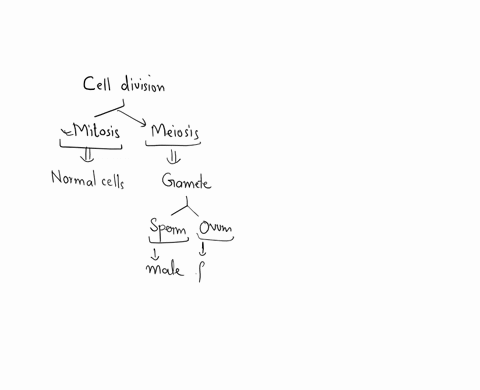 Cell division
Mitosis Meiosis
Normal cells Gamete
Sperm Ovum
male f